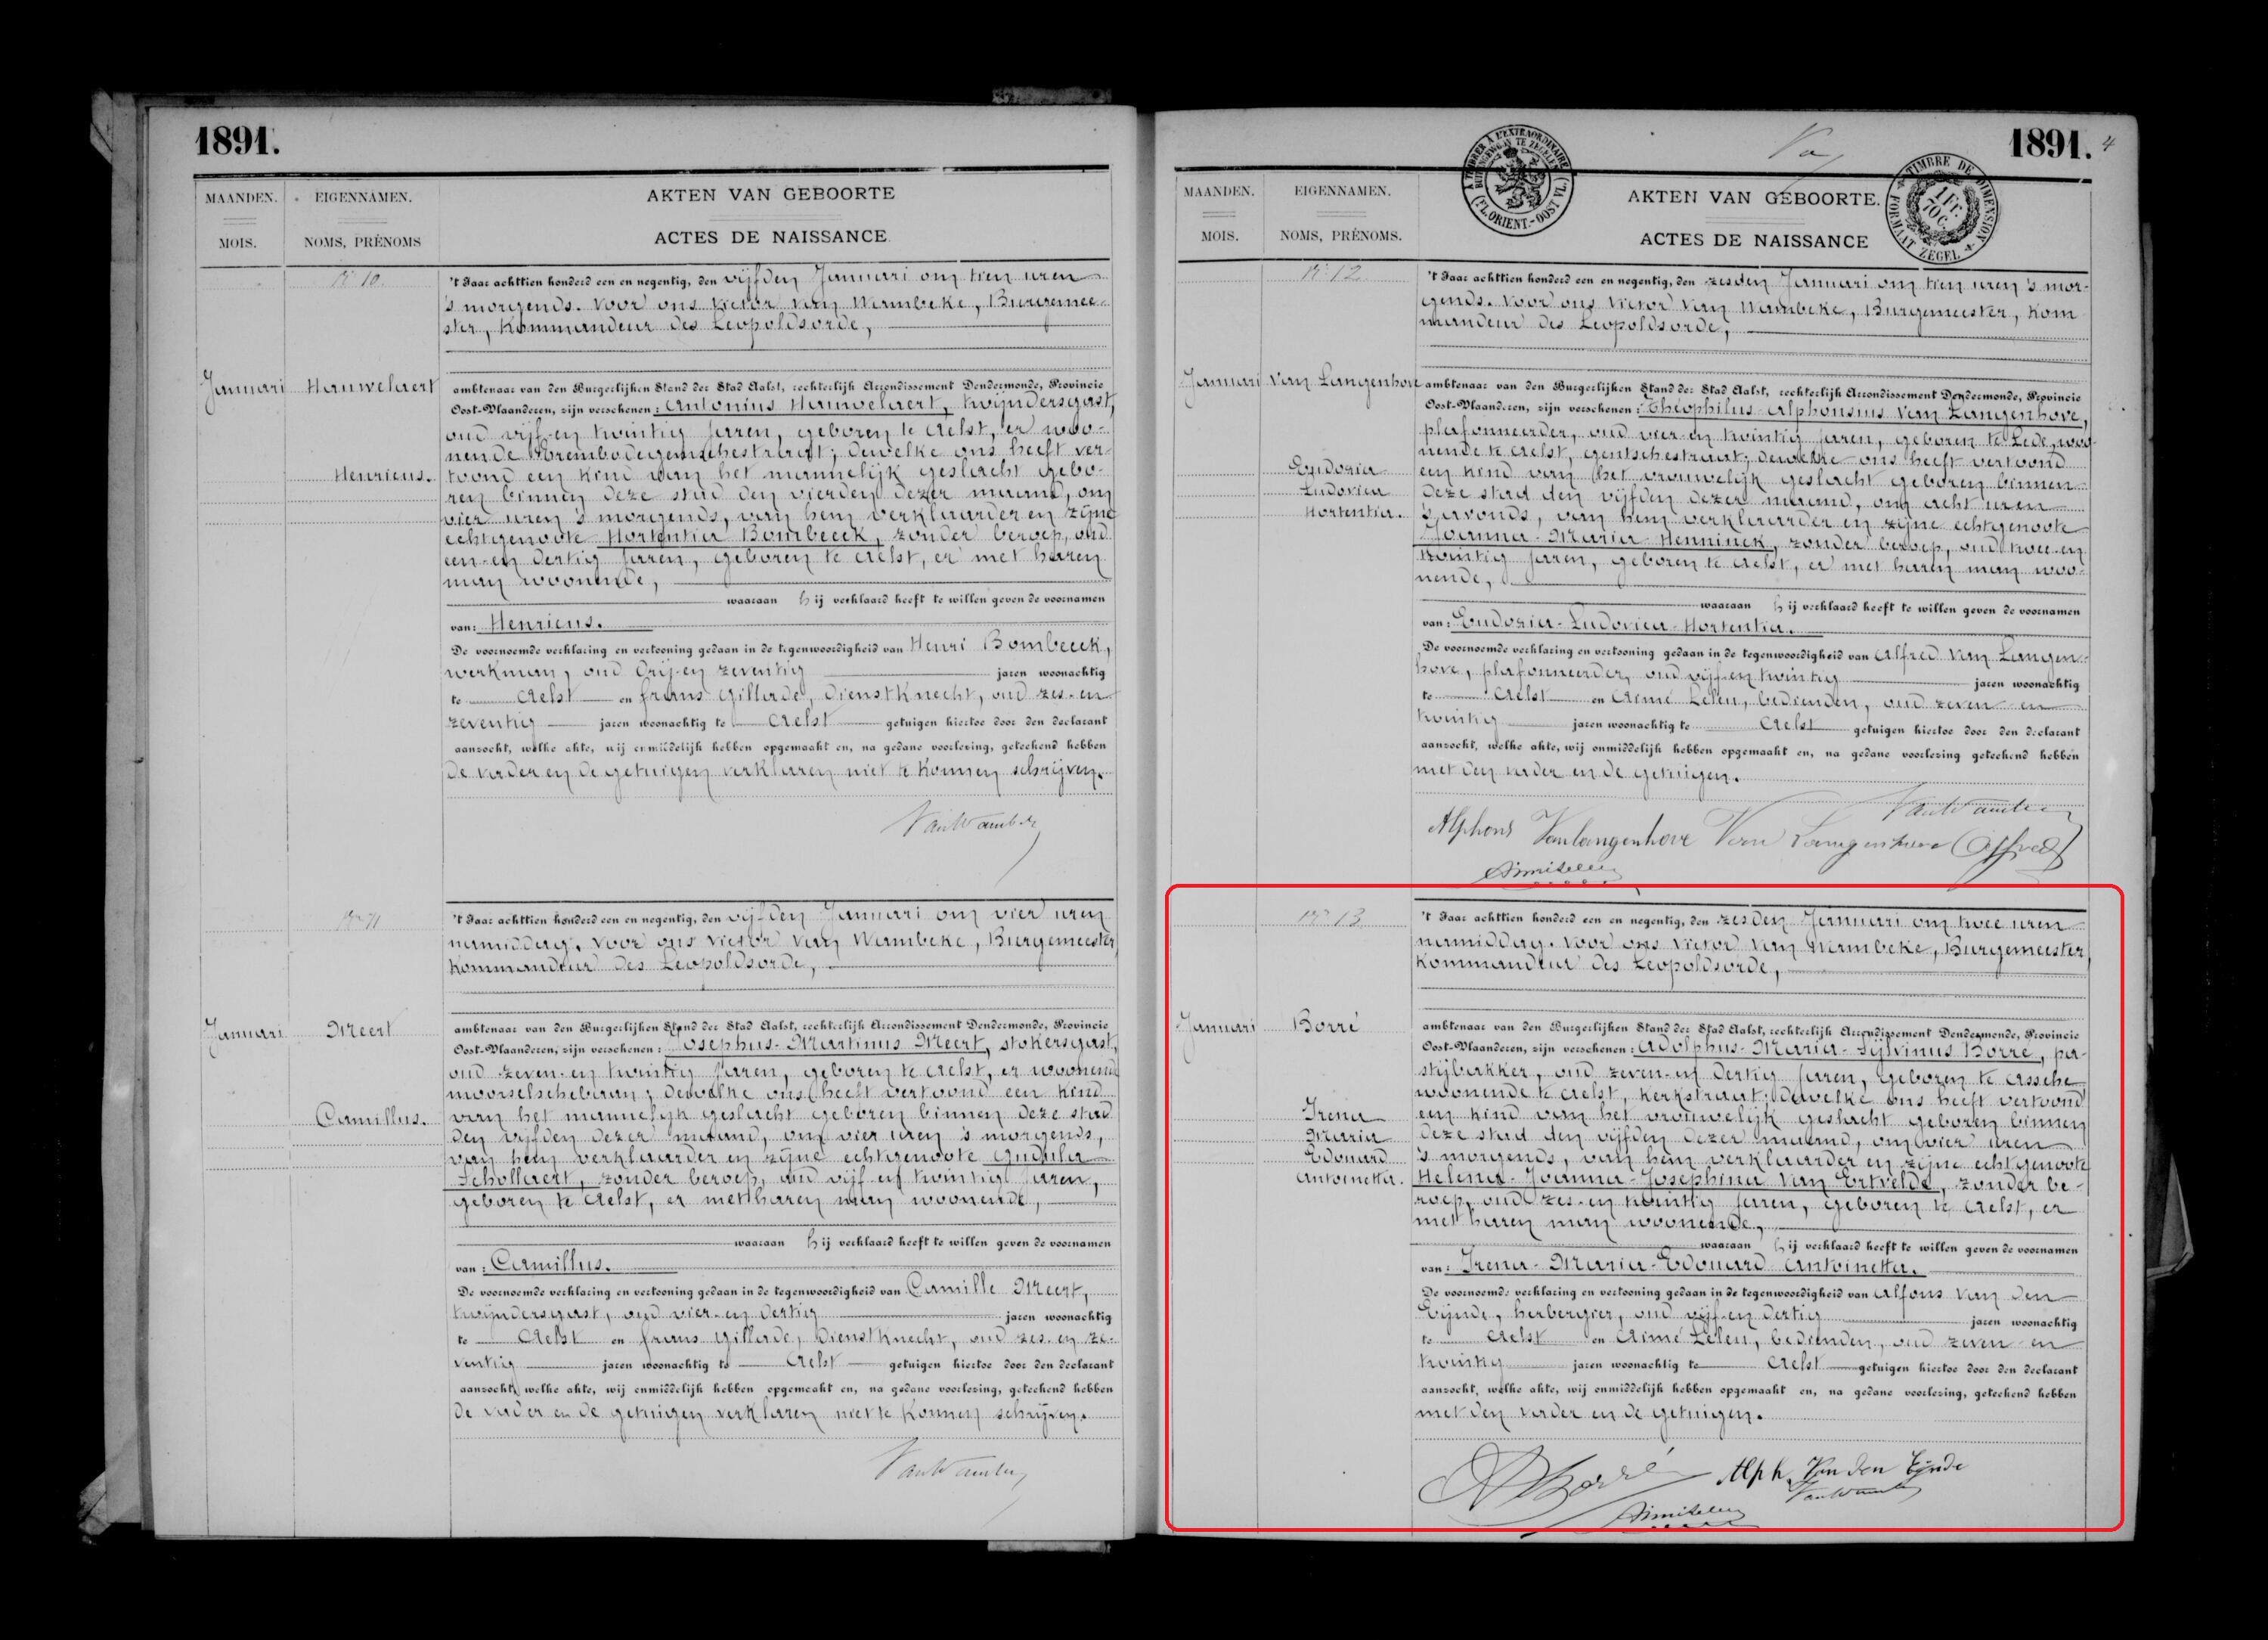 1891.
MAANDEN.
MOIS.
EIGENNAMEN.
NOMS, PRÉNOMS
AKTEN VAN GEBOORTE
ACTES DE NAISSANCE
No 10.
't Jaar achttien honderd een en negentig, den vijfden Januari om tien uren
's morgends. Voor ons Victor Van Wambeke, Burgemee-
ster, Kommandeur des Leopoldsorde,
Januari
Hauwelaert
Henricus.
ambtenaar van den Burgerlijken Stand der Stad Aalst, rechterlijk Arrondissement Dendermonde, Provincie
Oost-Vlaanderen, zijn verschenen: Antonius Hauwelaert, twijndersgast,
oud vijf-en twintig jaren, geboren te Aelst, er woo-
nende Erembodegemschestraat; dewelke ons heeft ver-
toond een kind van het mannelijk geslacht gebo-
ren binnen deze stad den vierden dezer maand, om
vier uren 's morgends, van hem verklaarder en zijne
echtgenoote Hortentia Bombeeck, zonder beroep, oud
een-en dertig jaren, geboren te Aelst, er met haren
man woonende,
waaraan hij verklaard heeft te willen geven de voornamen
van: Henricus.
De voornoemde verklaring en vertooning gedaan in de tegenwoordigheid van Henri Bombeeck,
werkman, oud drij-en zeventig jaren woonachtig
te Aelst en frans Gillade, dienstknecht, oud zes-en
zeventig jaren woonachtig te Aelst getuigen hiertoe door den declarant
aanzocht, welke akte, wij onmiddelijk hebben opgemaakt en, na gedane voorlezing, geteekend hebben
de vader en de getuigen verklaren niet te konnen schrijven.
VanWambeke
No 11
't Jaar achttien honderd een en negentig, den vijfden Januari om vier uren
namiddag. Voor ons Victor Van Wambeke, Burgemeester,
Kommandeur des Leopoldsorde,
Januari
Meert
Camillus.
ambtenaar van den Burgerlijken Stand der Stad Aalst, rechterlijk Arrondissement Dendermonde, Provincie
Oost-Vlaanderen, zijn verschenen: Josephus-Martinus Meert, stokersgast,
oud zeven-en twintig jaren, geboren te Aelst, er woonende
moorselschebaan; dewelke ons heeft vertoond een kind
van het mannelijk geslacht geboren binnen deze stad
den vijfden dezer maand, om vier uren 's morgends,
van hem verklaarder en zijne echtgenoote Gudula
Schollaert, zonder beroep, oud vijf-en twintig jaren,
geboren te Aelst, er met haren man woonende,
waaraan hij verklaard heeft te willen geven de voornamen
van: Camillus.
De voornoemde verklaring en vertooning gedaan in de tegenwoordigheid van Camille Meert,
twijndersgast, oud vier-en dertig jaren woonachtig
te Aelst en frans Gillade, dienstknecht, oud zes-en ze-
ventig jaren woonachtig te Aelst getuigen hiertoe door den declarant
aanzocht, welke akte, wij onmiddelijk hebben opgemaakt en, na gedane voorlezing, geteekend hebben
de vader en de getuigen verklaren niet te konnen schrijven.
VanWambeke
1891.
4
A TIMBRER A L'EXTRAORDINAIRE
BUITENGEWOON TE ZEGELEN
(FL. ORIENT.-OOST VL.)
TIMBRE DE DIMENSION
1 Fr. 70 C.
FORMAAT ZEGEL
MAANDEN.
MOIS.
EIGENNAMEN.
NOMS, PRÉNOMS.
AKTEN VAN GEBOORTE.
ACTES DE NAISSANCE
No 12.
't Jaar achttien honderd een en negentig, den zesden Januari om tien uren 's mor-
gends. Voor ons Victor Van Wambeke, Burgemeester, Kom
mandeur des Leopoldsorde,
Januari
Van Langenhove
Eudoxia
Ludovica
Hortentia.
ambtenaar van den Burgerlijken Stand der Stad Aalst, rechterlijk Arrondissement Dendermonde, Provincie
Oost-Vlaanderen, zijn verschenen: Théophilus-Alphonsius Van Langenhove,
plafonneerder, oud vier-en twintig jaren, geboren te Lede, woo-
nende te Aelst, gentschestraat; dewelke ons heeft vertoond
een kind van het vrouwelijk geslacht geboren binnen
deze stad den vijfden dezer maand, om acht uren
's avonds, van hem verklaarder en zijne echtgenoote
Joanna-Maria-Henninck, zonder beroep, oud twee-en
twintig jaren, geboren te Aelst, er met haren man woo-
nende,
waaraan hij verklaard heeft te willen geven de voornamen
van: Eudoxia-Ludovica-Hortentia.
De voornoemde verklaring en vertooning gedaan in de tegenwoordigheid van Alfred Van Langen-
hove, plafonneerder, oud vijf-en twintig jaren woonachtig
te Aelst en Aimé Leleu, bedienden, oud zeven-en
twintig jaren woonachtig te Aelst getuigen hiertoe door den declarant
aanzocht, welke akte, wij onmiddelijk hebben opgemaakt en, na gedane voorlezing, geteekend hebben
met den vader en de getuigen.
VanWambeke
Alphons Vanlangenhove Van Langenhove Alfred
Aimé Leleu
No 13.
't Jaar achttien honderd een en negentig, den zesden Januari om twee uren
namiddag. Voor ons Victor Van Wambeke, Burgemeester,
Kommandeur des Leopoldsorde,
Januari
Borré
Irena
Maria
Edouard
Antoinetta.
ambtenaar van den Burgerlijken Stand der Stad Aalst, rechterlijk Arrondissement Dendermonde, Provincie
Oost-Vlaanderen, zijn verschenen: Adolphus-Maria-Sylvinus Borré, pa-
stijbakker, oud zeven-en dertig jaren, geboren te Assche
woonende te Aelst, Kerkstraat; dewelke ons heeft vertoond
een kind van het vrouwelijk geslacht geboren binnen
deze stad den vijfden dezer maand, om vier uren
's morgends, van hem verklaarder en zijne echtgenoote
Helena-Joanna-Josephina Van Ertvelde, zonder be-
roep, oud zes-en twintig jaren, geboren te Aelst, er
met haren man woonende,
waaraan hij verklaard heeft te willen geven de voornamen
van: Irena-Maria-Edouard Antoinetta.
De voornoemde verklaring en vertooning gedaan in de tegenwoordigheid van Alfons Van den
Eijnde, herbergier, oud vijf-en dertig jaren woonachtig
te Aelst en Aimé Leleu, bedienden, oud zeven-en
twintig jaren woonachtig te Aelst getuigen hiertoe door den declarant
aanzocht, welke akte, wij onmiddelijk hebben opgemaakt en, na gedane voorlezing, geteekend hebben
met den vader en de getuigen.
ABorré Alph. Van den Eijnde
VanWambeke
Aimé Leleu